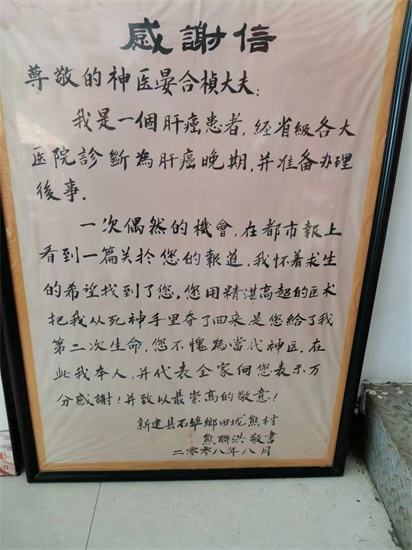 感謝信
尊敬的神医晏合楨大夫:
我是一個肝癌患者,经省级各大
医院診斷為肝癌晚期,并准备办理
後事.
一次偶然的機會,在都市報上
看到一篇关於您的報道,我怀着求生
的希望找到了您,您用精湛高超的医术
把我从死神手里夺了回来,是您给了我
第二次生命,您不愧為當代神医,在
此我本人,并代表全家向您表示万
分感謝!并致以最崇高的敬意!
新建县石埠鄉田垅熊村
熊聯洪敬書
二零零八年八月